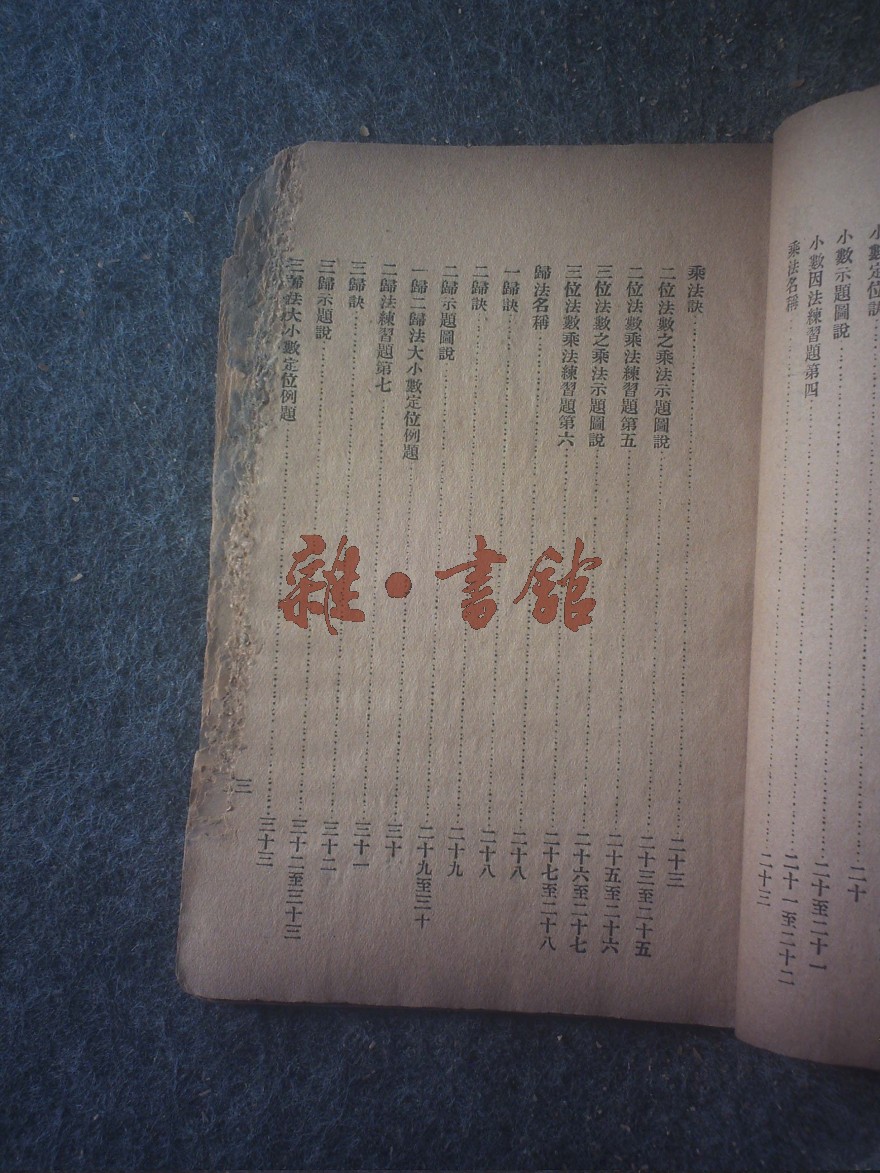 小數定位訣……二十
小數示題圖說……二十至二十一
小數因法練習題第四……二十一至二十二
乘法名稱……二十三
乘法訣……二十三
二位法數之乘法示題圖說……二十三至二十五
二位法數乘法練習題第五……二十五至二十六
三位法數之乘法示題圖說……二十六至二十七
三位法數乘法練習題第六……二十七至二十八
歸法名稱……二十八
一歸訣……二十八
二歸訣……二十九
二歸示題圖說……二十九至三十
一歸二歸法大小數定位例題……三十
二歸法練習題第七……三十一
三歸訣……三十二
三歸示題說……三十二至三十三
三歸法大小數定位例題……三十三
三
雜·書館